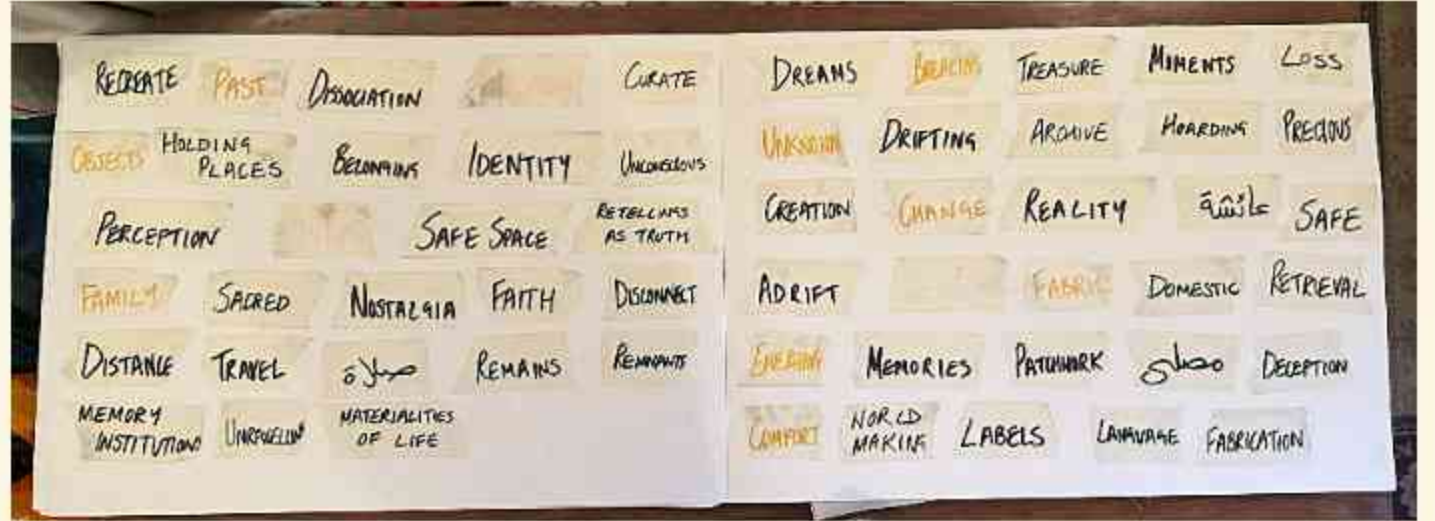 RECREATE PAST DISSOCIATION CURATE
OBJECTS HOLDING PLACES BELONGING IDENTITY UNCONSCIOUS
PERCEPTION SAFE SPACE RETELLINGS AS TRUTH
FAMILY SACRED NOSTALGIA FAITH DISCONNECT
DISTANCE TRAVEL صلاة REMAINS REMNANTS
MEMORY INSTITUTIONS MATERIALITIES OF LIFE
DREAMS TREASURE MOMENTS LOSS
UNKNOWN DRIFTING ARCHIVE HOARDING PRECIOUS
CREATION CHANGE REALITY عائشة SAFE
ADRIFT FABRIC DOMESTIC RETRIEVAL
MEMORIES PATCHWORK مصلى DECEPTION
COMFORT WORLD MAKING LABELS LANGUAGE FABRICATION